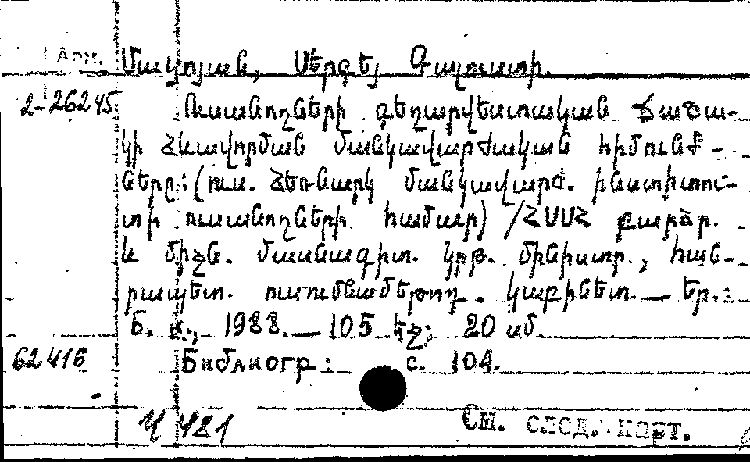 Арм. Մակոյան, Սերգեյ Գալուստի.
2-26245 Ուսանողների գեղարվեստական ճաշա-
կի ձևավորման մանկավարժական հիմունք-
ները: (ուս. ձեռնարկ մանկավարժ. ինստիտու-
տի ուսանողների համար) /ՀՍՍՀ բարձր.
և միջն. մասնագիտ. կրթ. մինիստր., հան-
րապետ. ուսումնամեթոդ. կաբինետ. — Եր.:
Բ. և., 1988. — 105 էջ; 20 սմ.
62416 Библиогр: с. 104.
Ч 481 См. след. карт.